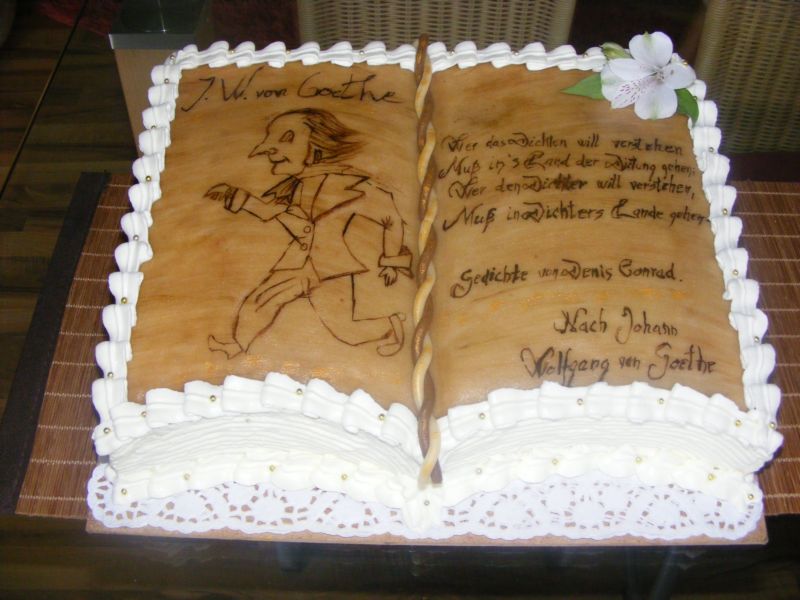 J. W. von Goethe
Wer das Dichten will verstehen
Muß in's Land der Dittung gehen;
Wer den Dichter will verstehen,
Muß in Dichters Lande gehen.
Gedichte von Denis Conrad.
Nach Johann
Wolfgang von Goethe